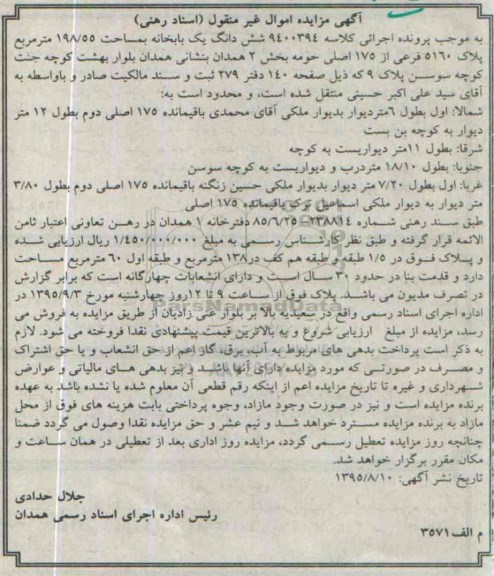 آگهی مزایده اموال غیر منقول (اسناد رهنی)
به موجب پرونده اجرائی کلاسه ۹۴۰۰۳۹۴ شش دانگ یک بابخانه بمساحت ۱۹۸/۵۵ مترمربع
پلاک ۵۱۶۰ فرعی از ۱۷۵ اصلی حومه بخش ۲ همدان بنشانی همدان بلوار بهشت کوچه جنت
کوچه سوسن پلاک ۹ که ذیل صفحه ۱۴۰ دفتر ۲۷۹ ثبت و سند مالکیت صادر و باواسطه به
آقای سید علی اکبر حسینی منتقل شده است، و محدود است به:
شمالا: اول بطول ۶متردیوار بدیوار ملکی آقای محمدی باقیمانده ۱۷۵ اصلی دوم بطول ۱۲ متر
دیوار به کوچه بن بست
شرقا: بطول ۱۱متر دیواریست به کوچه
جنوبا: بطول ۱۸/۱۰ متردرب و دیواریست به کوچه سوسن
غربا: اول بطول ۷/۲۰ متر دیوار بدیوار ملکی حسین زنگنه باقیمانده ۱۷۵ اصلی دوم بطول ۳/۸۰
متر دیوار به دیوار ملکی اسماعیل ترک باقیمانده ۱۷۵ اصلی
طبق سند رهنی شماره ۲۳۸۸۱۴-۸۵/۶/۲۵ دفترخانه ۱ همدان در رهن تعاونی اعتبار ثامن
الائمه قرار گرفته و طبق نظر کارشناس رسمی به مبلغ ۱/۴۵۰/۰۰۰/۰۰۰ ریال ارزیابی شده
و پلاک فوق در ۱/۵ طبقه و طبقه هم کف در۱۳۸ مترمربع و طبقه اول ۶۰ مترمربع مساحت
دارد و قدمت بنا در حدود ۳۰ سال است و دارای انشعابات چهارگانه است که برابر گزارش
در تصرف مدیون می باشد. پلاک فوق از ساعت ۹ تا ۱۲روز چهارشنبه مورخ ۱۳۹۵/۹/۳ در
اداره اجرای اسناد رسمی واقع در سعیدیه بالا بر بلوار علی زادیان از طریق مزایده به فروش می
رسد، مزایده از مبلغ ارزیابی شروع و به بالاترین قیمت پیشنهادی نقدا فروخته می شود. لازم
به ذکر است پرداخت بدهی های مربوط به آب، برق، گاز اعم از حق انشعاب و یا حق اشتراک
و مصرف در صورتی که مورد مزایده دارای آنها باشد و نیز بدهی های مالیاتی و عوارض
شهرداری و غیره تا تاریخ مزایده اعم از اینکه رقم قطعی آن معلوم شده یا نشده باشد به عهده
برنده مزایده است و نیز در صورت وجود مازاد، وجوه پرداختی بابت هزینه های فوق از محل
مازاد به برنده مزایده مسترد خواهد شد و نیم عشر و حق مزایده نقدا وصول می گردد ضمنا
چنانچه روز مزایده تعطیل رسمی گردد، مزایده روز اداری بعد از تعطیلی در همان ساعت و
مکان مقرر برگزار خواهد شد.
تاریخ نشر آگهی: ۱۳۹۵/۸/۱۰
جلال حدادی
رئیس اداره اجرای اسناد رسمی همدان
م الف۳۵۷۱